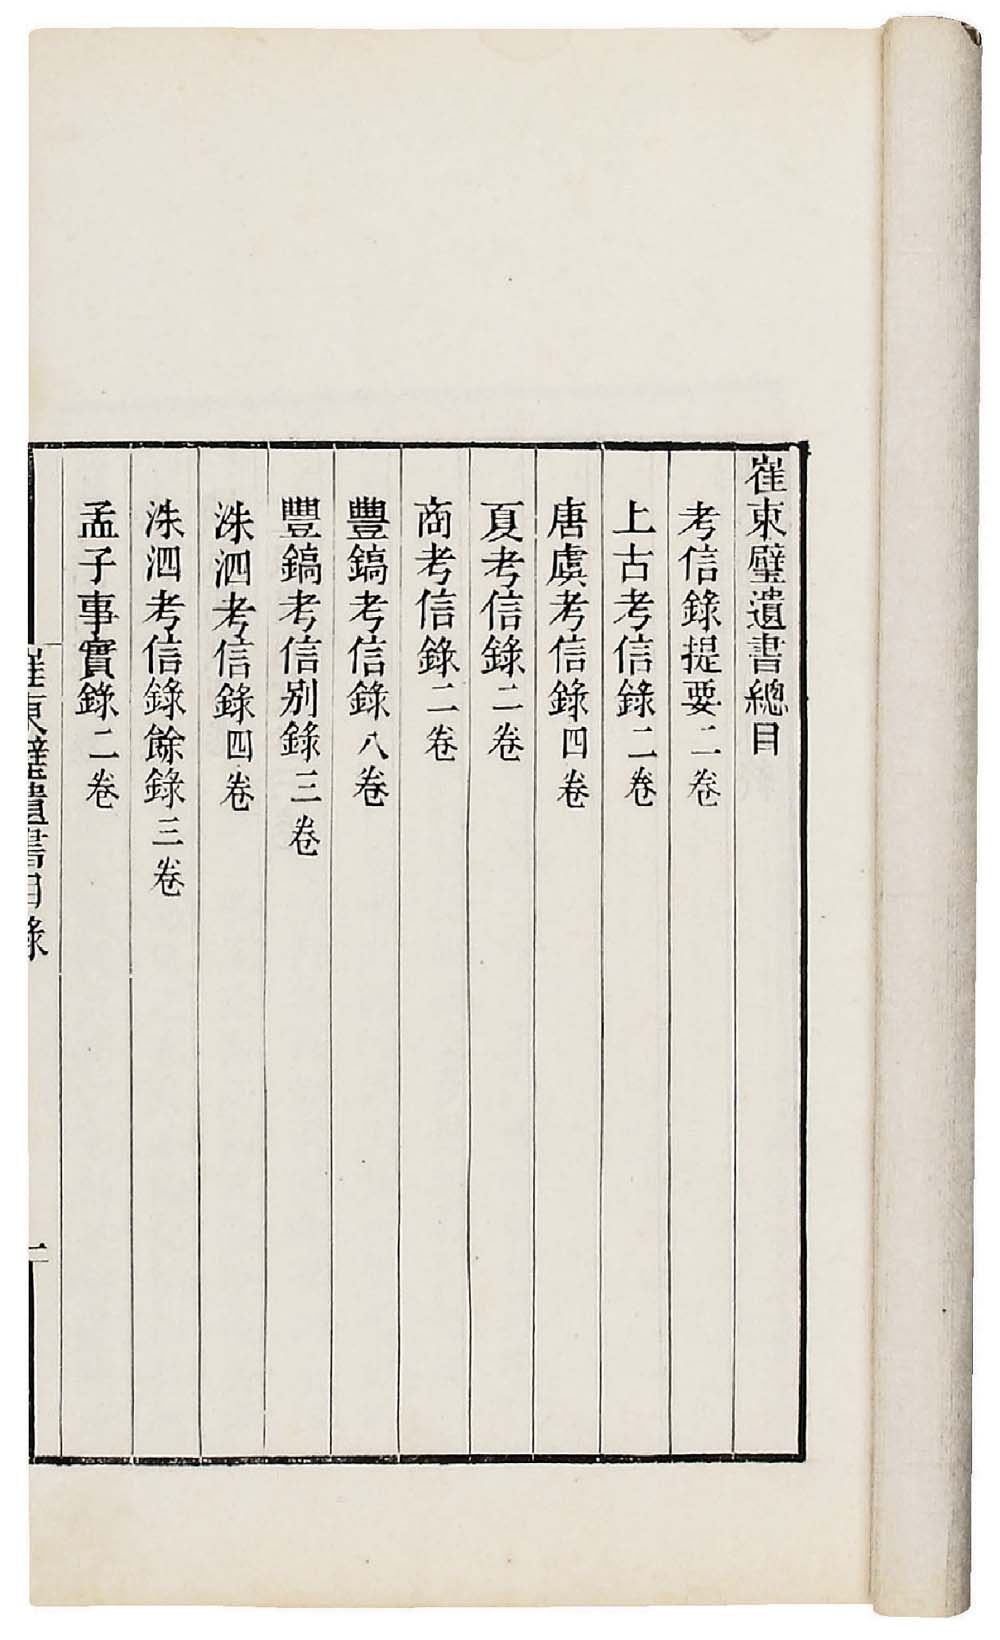 崔東壁遺書總目
考信錄提要二卷
上古考信錄二卷
唐虞考信錄四卷
夏考信錄二卷
商考信錄二卷
豐鎬考信錄八卷
豐鎬考信別錄三卷
洙泗考信錄四卷
洙泗考信錄餘錄三卷
孟子事實錄二卷
崔東壁遺書目錄
一